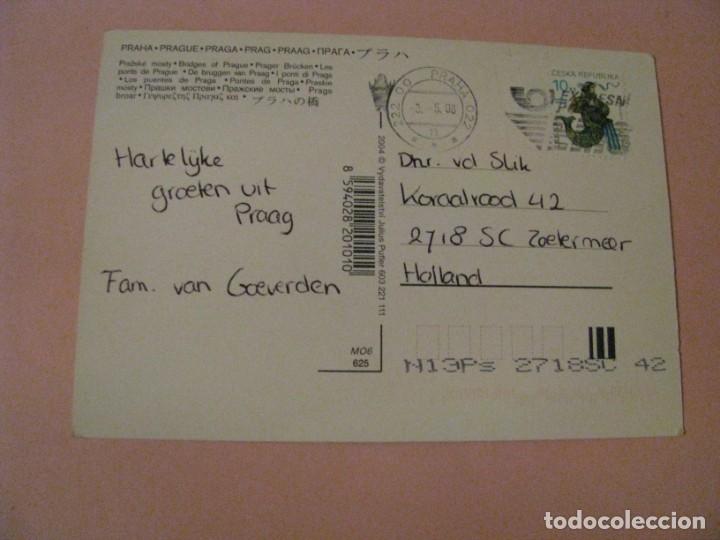 PRAHA • PRAGUE • PRAGA • PRAG • PRAAG • ПРАГА • プラハ
Pražské mosty • Bridges of Prague • Prager Brücken • Les
ponts de Prague • De bruggen van Praag • I ponti di Praga
• Los puentes de Praga • Pontes de Praga • Praskie
mosty • Прашки мостови • Пражские мосты • Prags
broar • プラハの橋
Hartelijke
groeten uit
Praag
Fam. van Goeverden
8 594028 201010
2004 © Vydavatelství Julius Purter 603 221 111
MO6
625
622 00 PRAHA 022
ČESKÁ REPUBLIKA
10
Dhr. vd Slik
Koraalrood 42
2718 SC Zoetermeer
Holland
N13Ps 2718SC 42
todocoleccion
todocoleccion.net